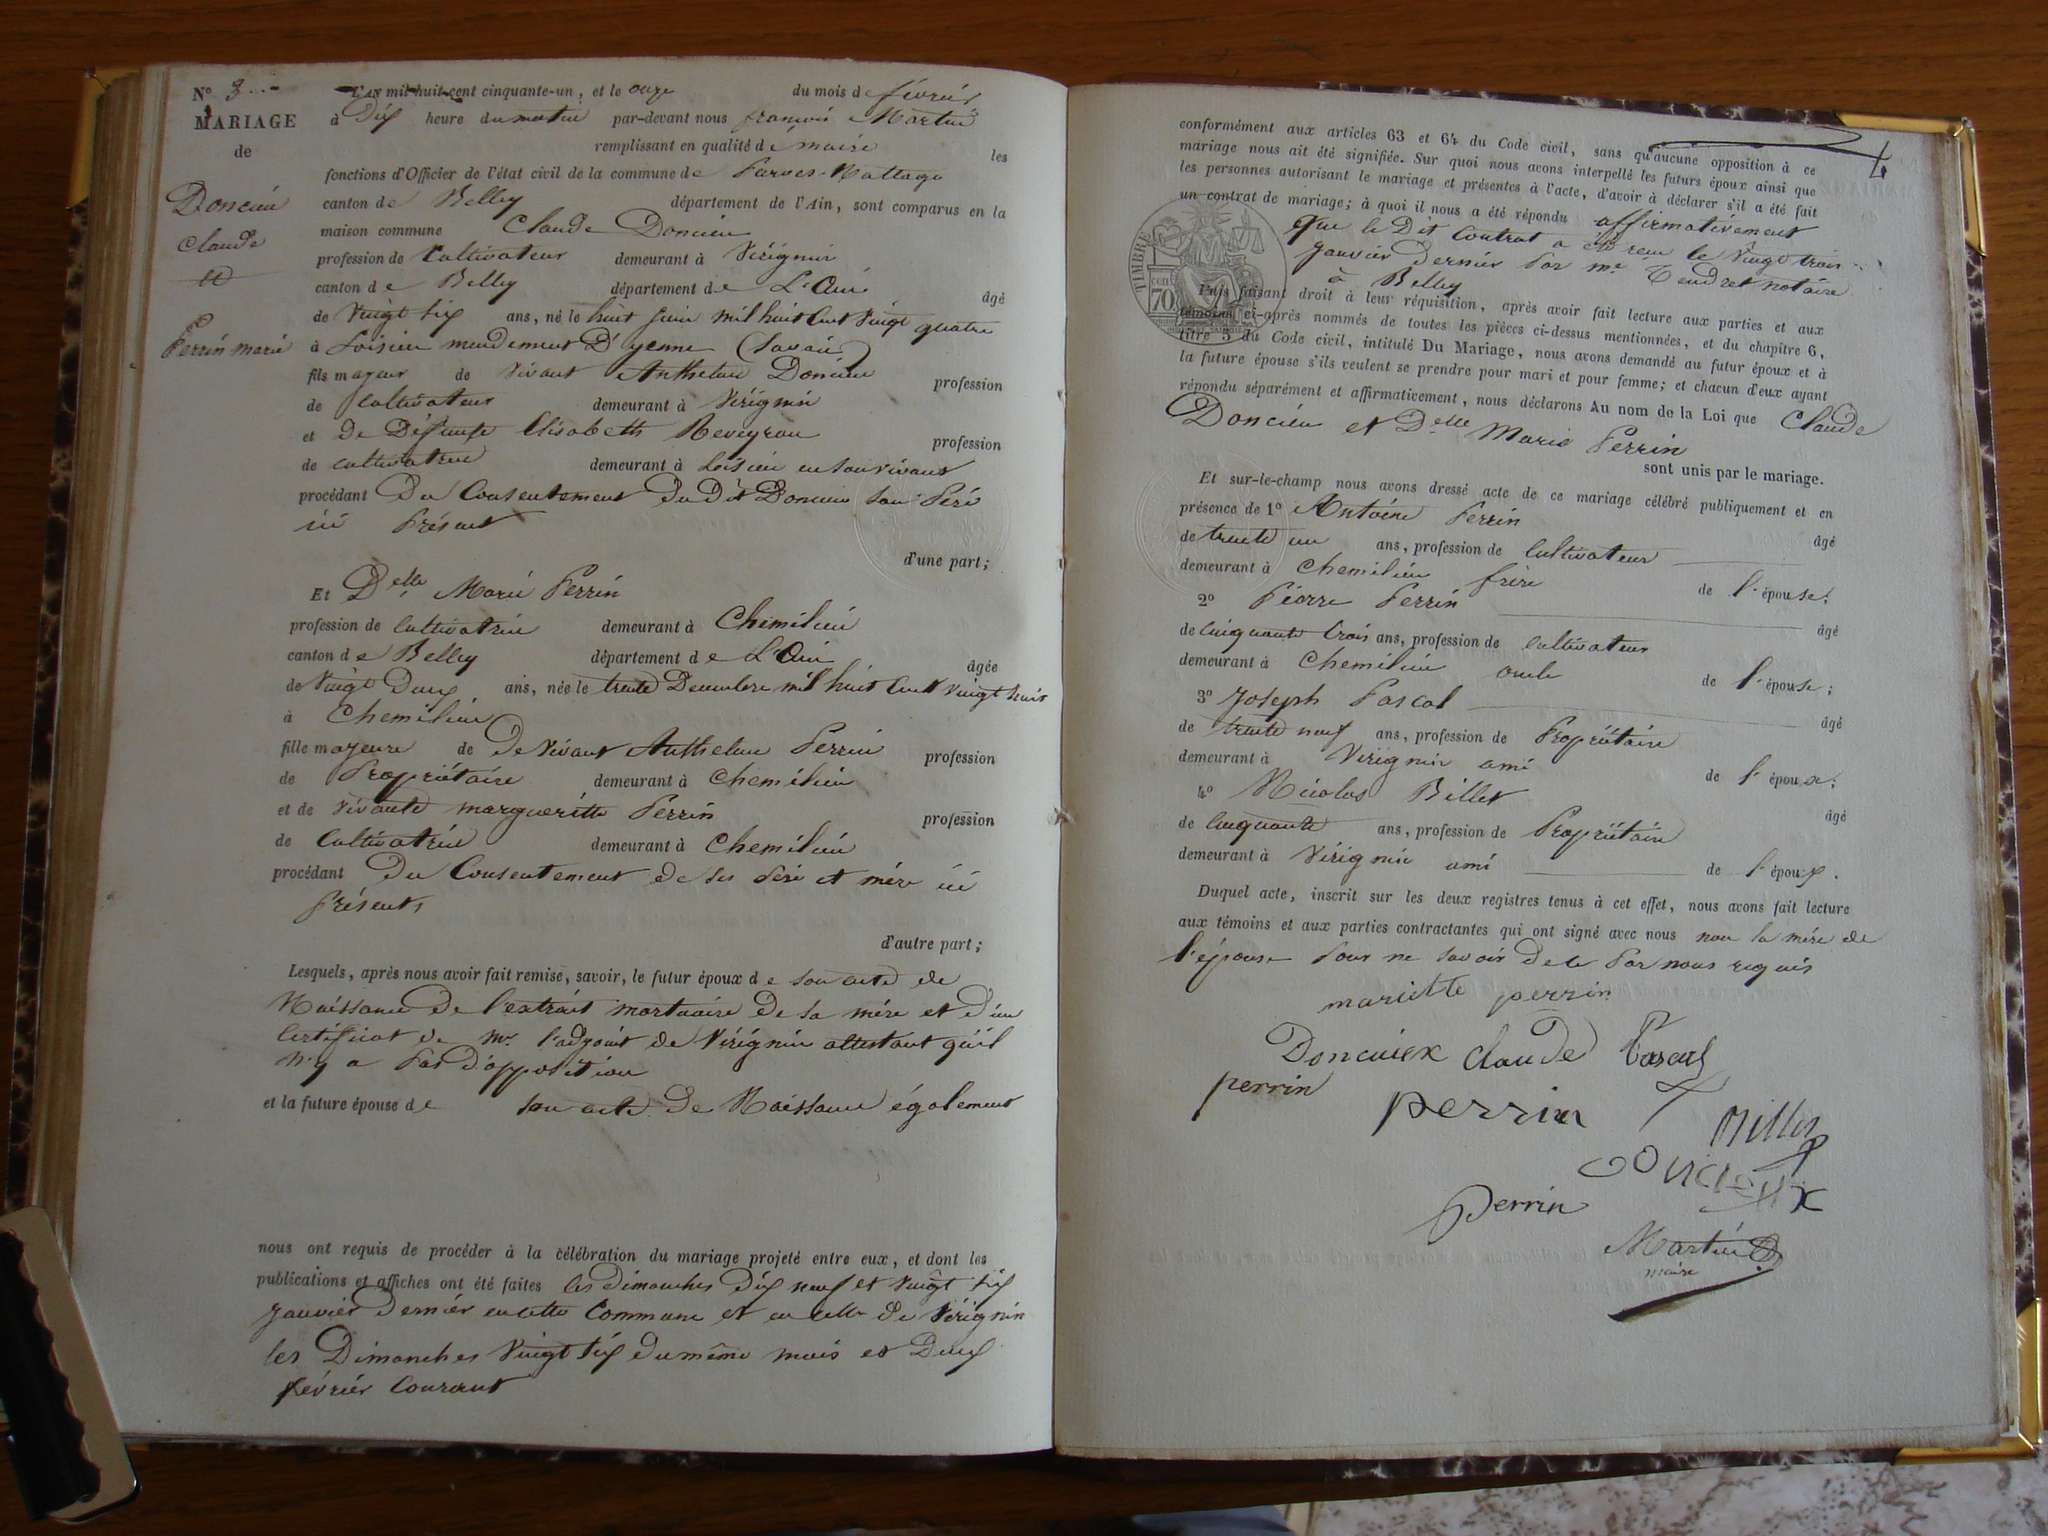 N° 3
MARIAGE
de
Doncieu
Claude
et
Perrin marie
L'AN mil huit cent cinquante-un, et le onze du mois de février
à Dix heure du matin par-devant nous françois Martin
remplissant en qualité de maire les
fonctions d'Officier de l'état civil de la commune de Parves-Nattage
canton de Belley département de l'Ain, sont comparus en la
maison commune Claude Doncieu
profession de Cultivateur demeurant à Virignin
canton de Belley département de L'Ain âgé
de Vingt six ans, né le huit juin mil huit cent vingt quatre
à Loisieu mendement D'yenne (Savoie)
fils majeur de vivant Anthelme Doncieu profession
de Cultivateur demeurant à Virignin
et de Défunte Elisabeth Reveyron profession
de cultivatrice demeurant à Loisieu en son vivant
procédant Du Consentement du Dit Doncieu son Père
ici Présent
d'une part;
Et Delle Marie Perrin
profession de Cultivatrice demeurant à Chemilieu
canton de Belley département de L'Ain âgée
de Vingt Deux ans, née le trente Decembre mil huit cent vingt huit
à Chemilieu
fille majeure de De vivant Anthelme Perrin profession
de Propriétaire demeurant à Chemilieu
et de vivante margueritte Perrin profession
de Cultivatrice demeurant à Chemilieu
procédant Du Consentement de ses Père et mère ici
Présents
d'autre part;
Lesquels, après nous avoir fait remise, savoir, le futur époux de son acte de
Naissance De l'extrait mortuaire De sa mère et d'un
Certificat de Mr l'adjoint de Virignin attestant qu'il
n'y a Pas D'opposition
et la future épouse de son acte De Naissance également
nous ont requis de procéder à la célébration du mariage projeté entre eux, et dont les
publications et affiches ont été faites les dimanches dix neuf et vingt six
janvier Dernier en cette Commune et en celle de Virignin
les Dimanches vingt six du même mois et Deux
février Courant
4
conformément aux articles 63 et 64 du Code civil, sans qu'aucune opposition à ce
mariage nous ait été signifiée. Sur quoi nous avons interpellé les futurs époux ainsi que
les personnes autorisant le mariage et présentes à l'acte, d'avoir à déclarer s'il a été fait
un contrat de mariage; à quoi il nous a été répondu affirmativement
que le Dit Contrat a été reçu le vingt trois
janvier Dernier Par me Tendret notaire
à Belley
TIMBRE
70
Puis faisant droit à leur réquisition, après avoir fait lecture aux parties et aux
témoins ci-après nommés de toutes les pièces ci-dessus mentionnées, et du chapitre 6,
titre 5 du Code civil, intitulé Du Mariage, nous avons demandé au futur époux et à
la future épouse s'ils veulent se prendre pour mari et pour femme; et chacun d'eux ayant
répondu séparément et affirmativement, nous déclarons Au nom de la Loi que Claude
Doncieu et Delle Marie Perrin
sont unis par le mariage.
Et sur-le-champ nous avons dressé acte de ce mariage célébré publiquement et en
présence de 1° Antoine Perrin âgé
de trente un ans, profession de Cultivateur
demeurant à Chemilieu frère de l'épouse;
2° Pierre Perrin âgé
de cinquante trois ans, profession de cultivateur
demeurant à Chemilieu oncle de l'épouse;
3° Joseph Pascal âgé
de trente neuf ans, profession de Propriétaire
demeurant à Virignin ami de l'époux;
4° Nicolas Billet âgé
de Cinquante ans, profession de Propriétaire
demeurant à Virignin ami de l'époux.
Duquel acte, inscrit sur les deux registres tenus à cet effet, nous avons fait lecture
aux témoins et aux parties contractantes qui ont signé avec nous non la mère de
l'épouse Pour ne savoir De ce Par nous requis
mariette perrin
Doncieux claude Pascal
perrin
perrin
Billet
Doncieux
perrin
Martin
maire